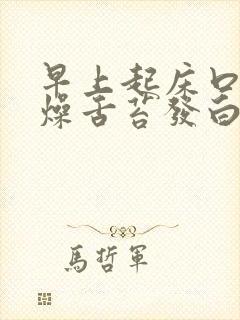 早上起床口
燥舌苔發白
馬哲軍